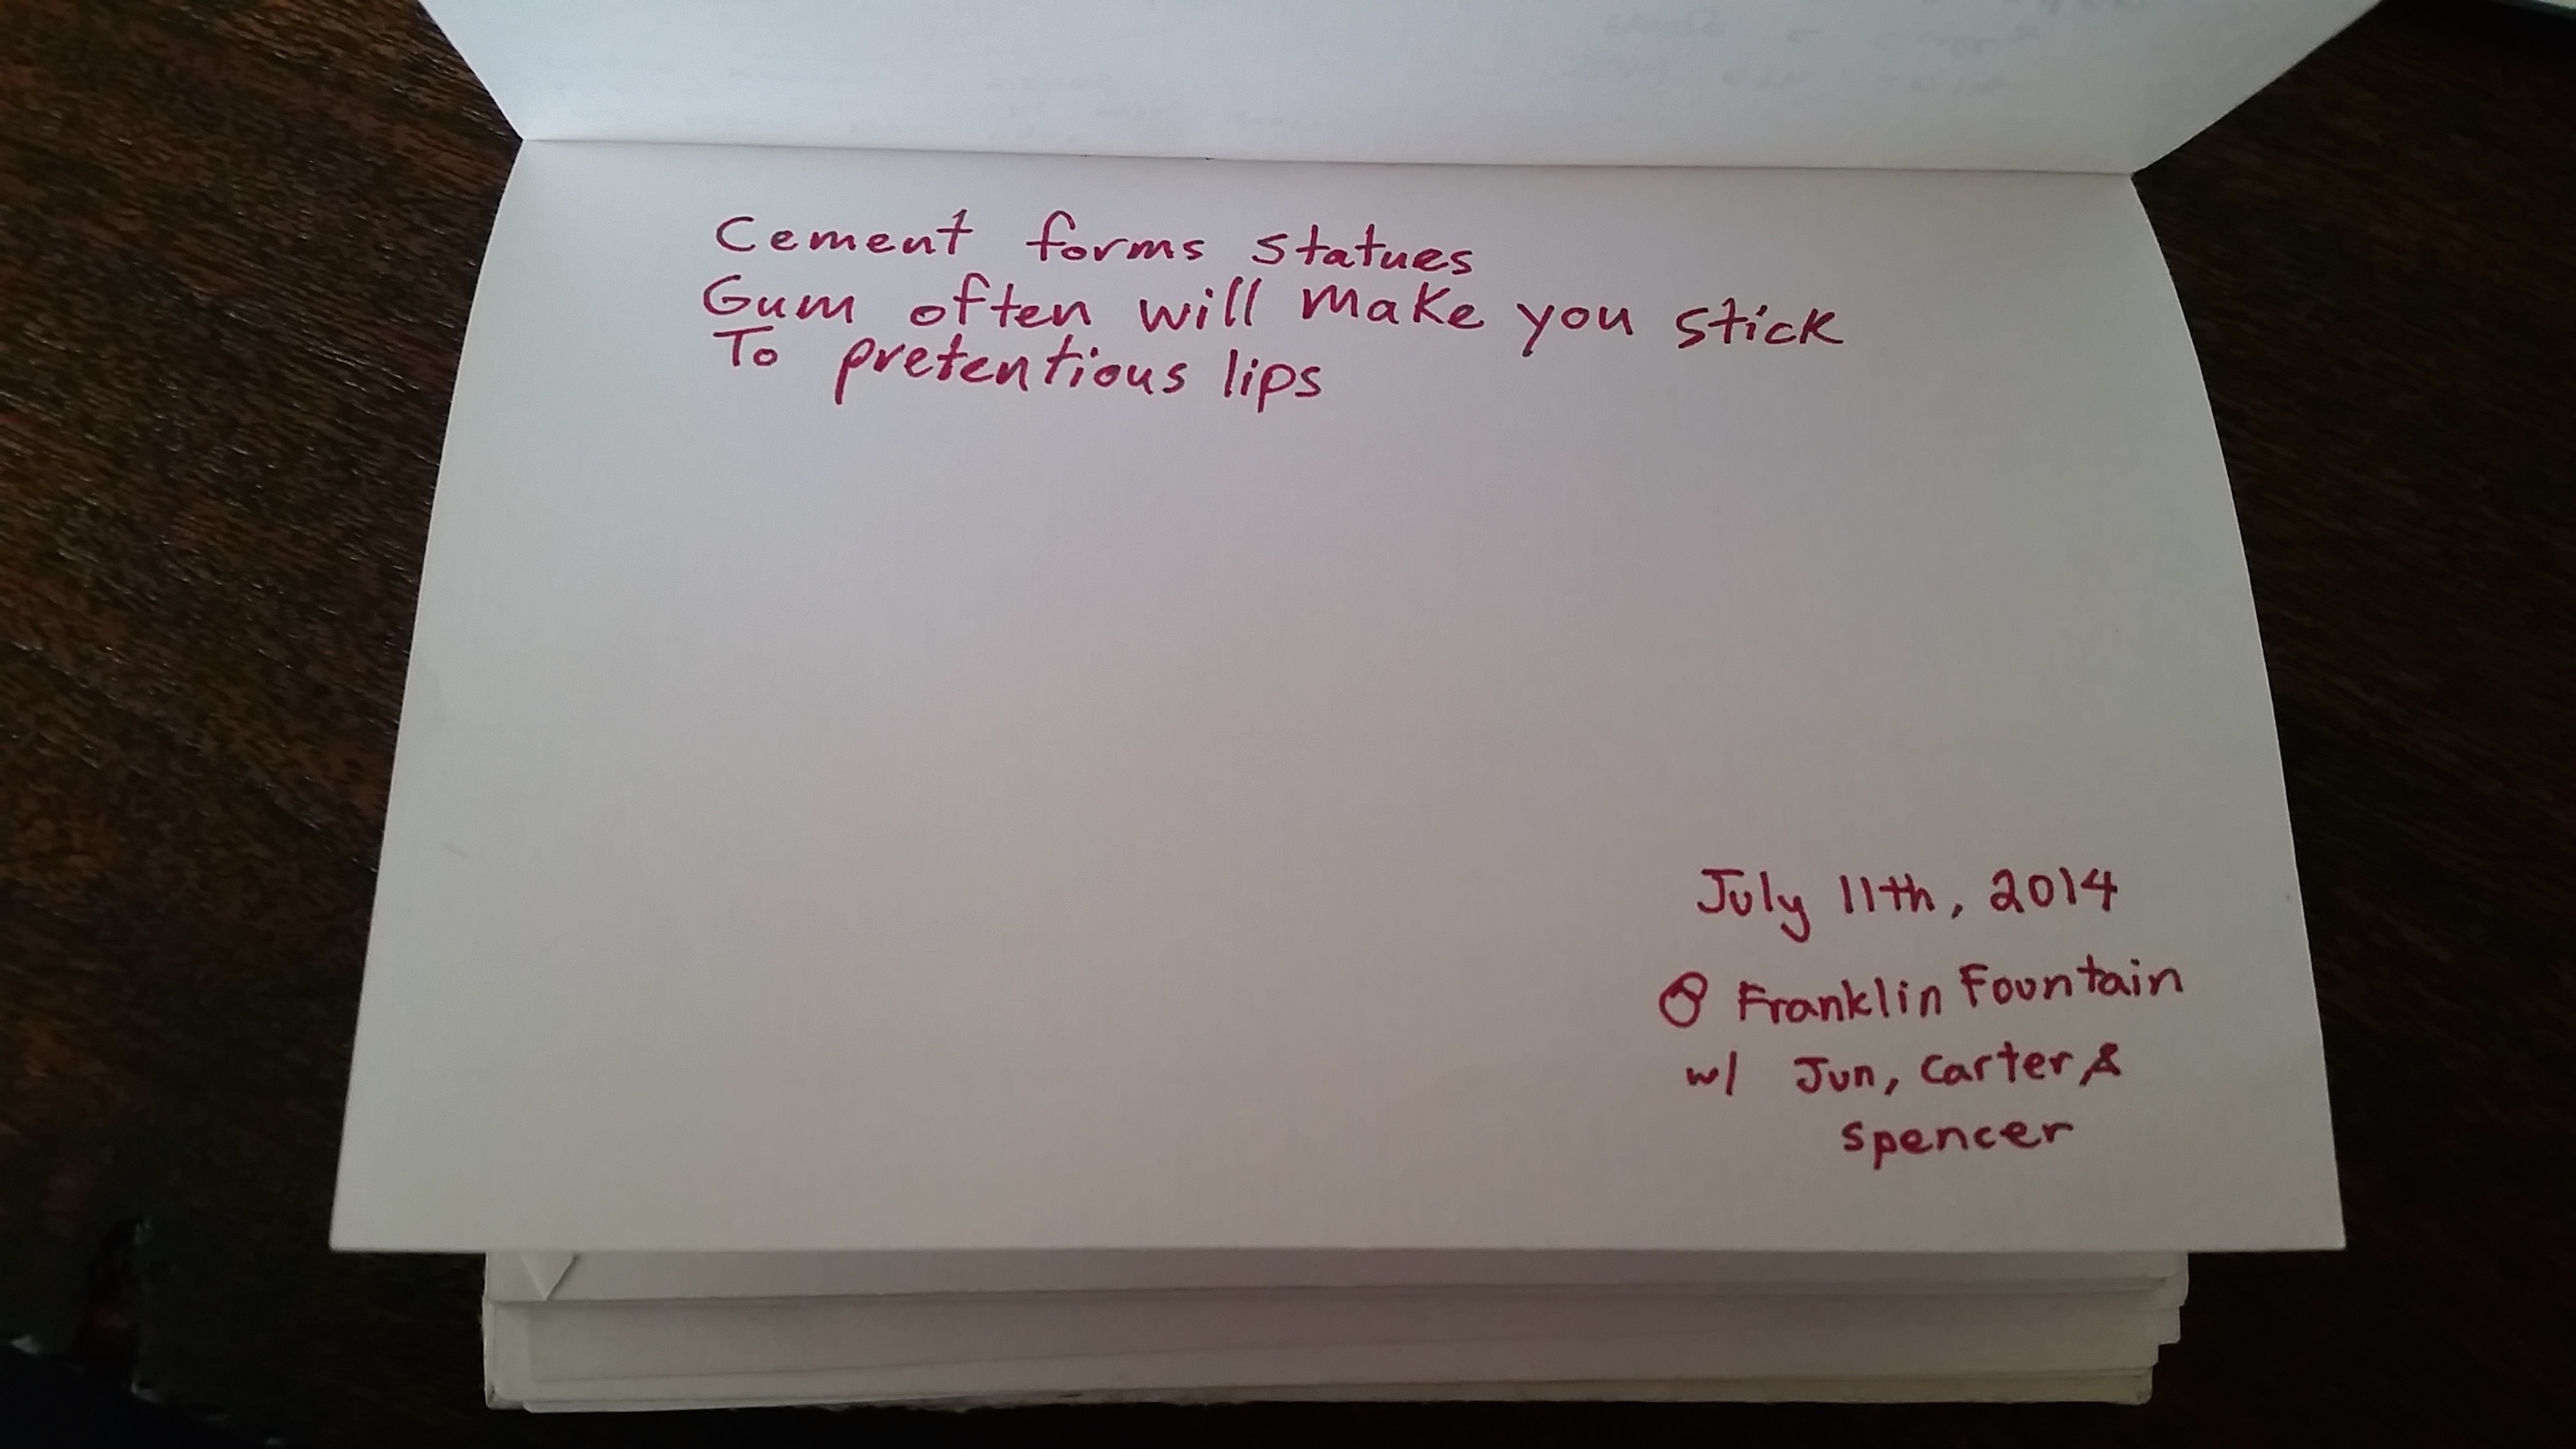 Cement forms statues
Gum often will make you stick
To pretentious lips
July 11th, 2014
@ Franklin Fountain
w/ Jun, Carter &
Spencer